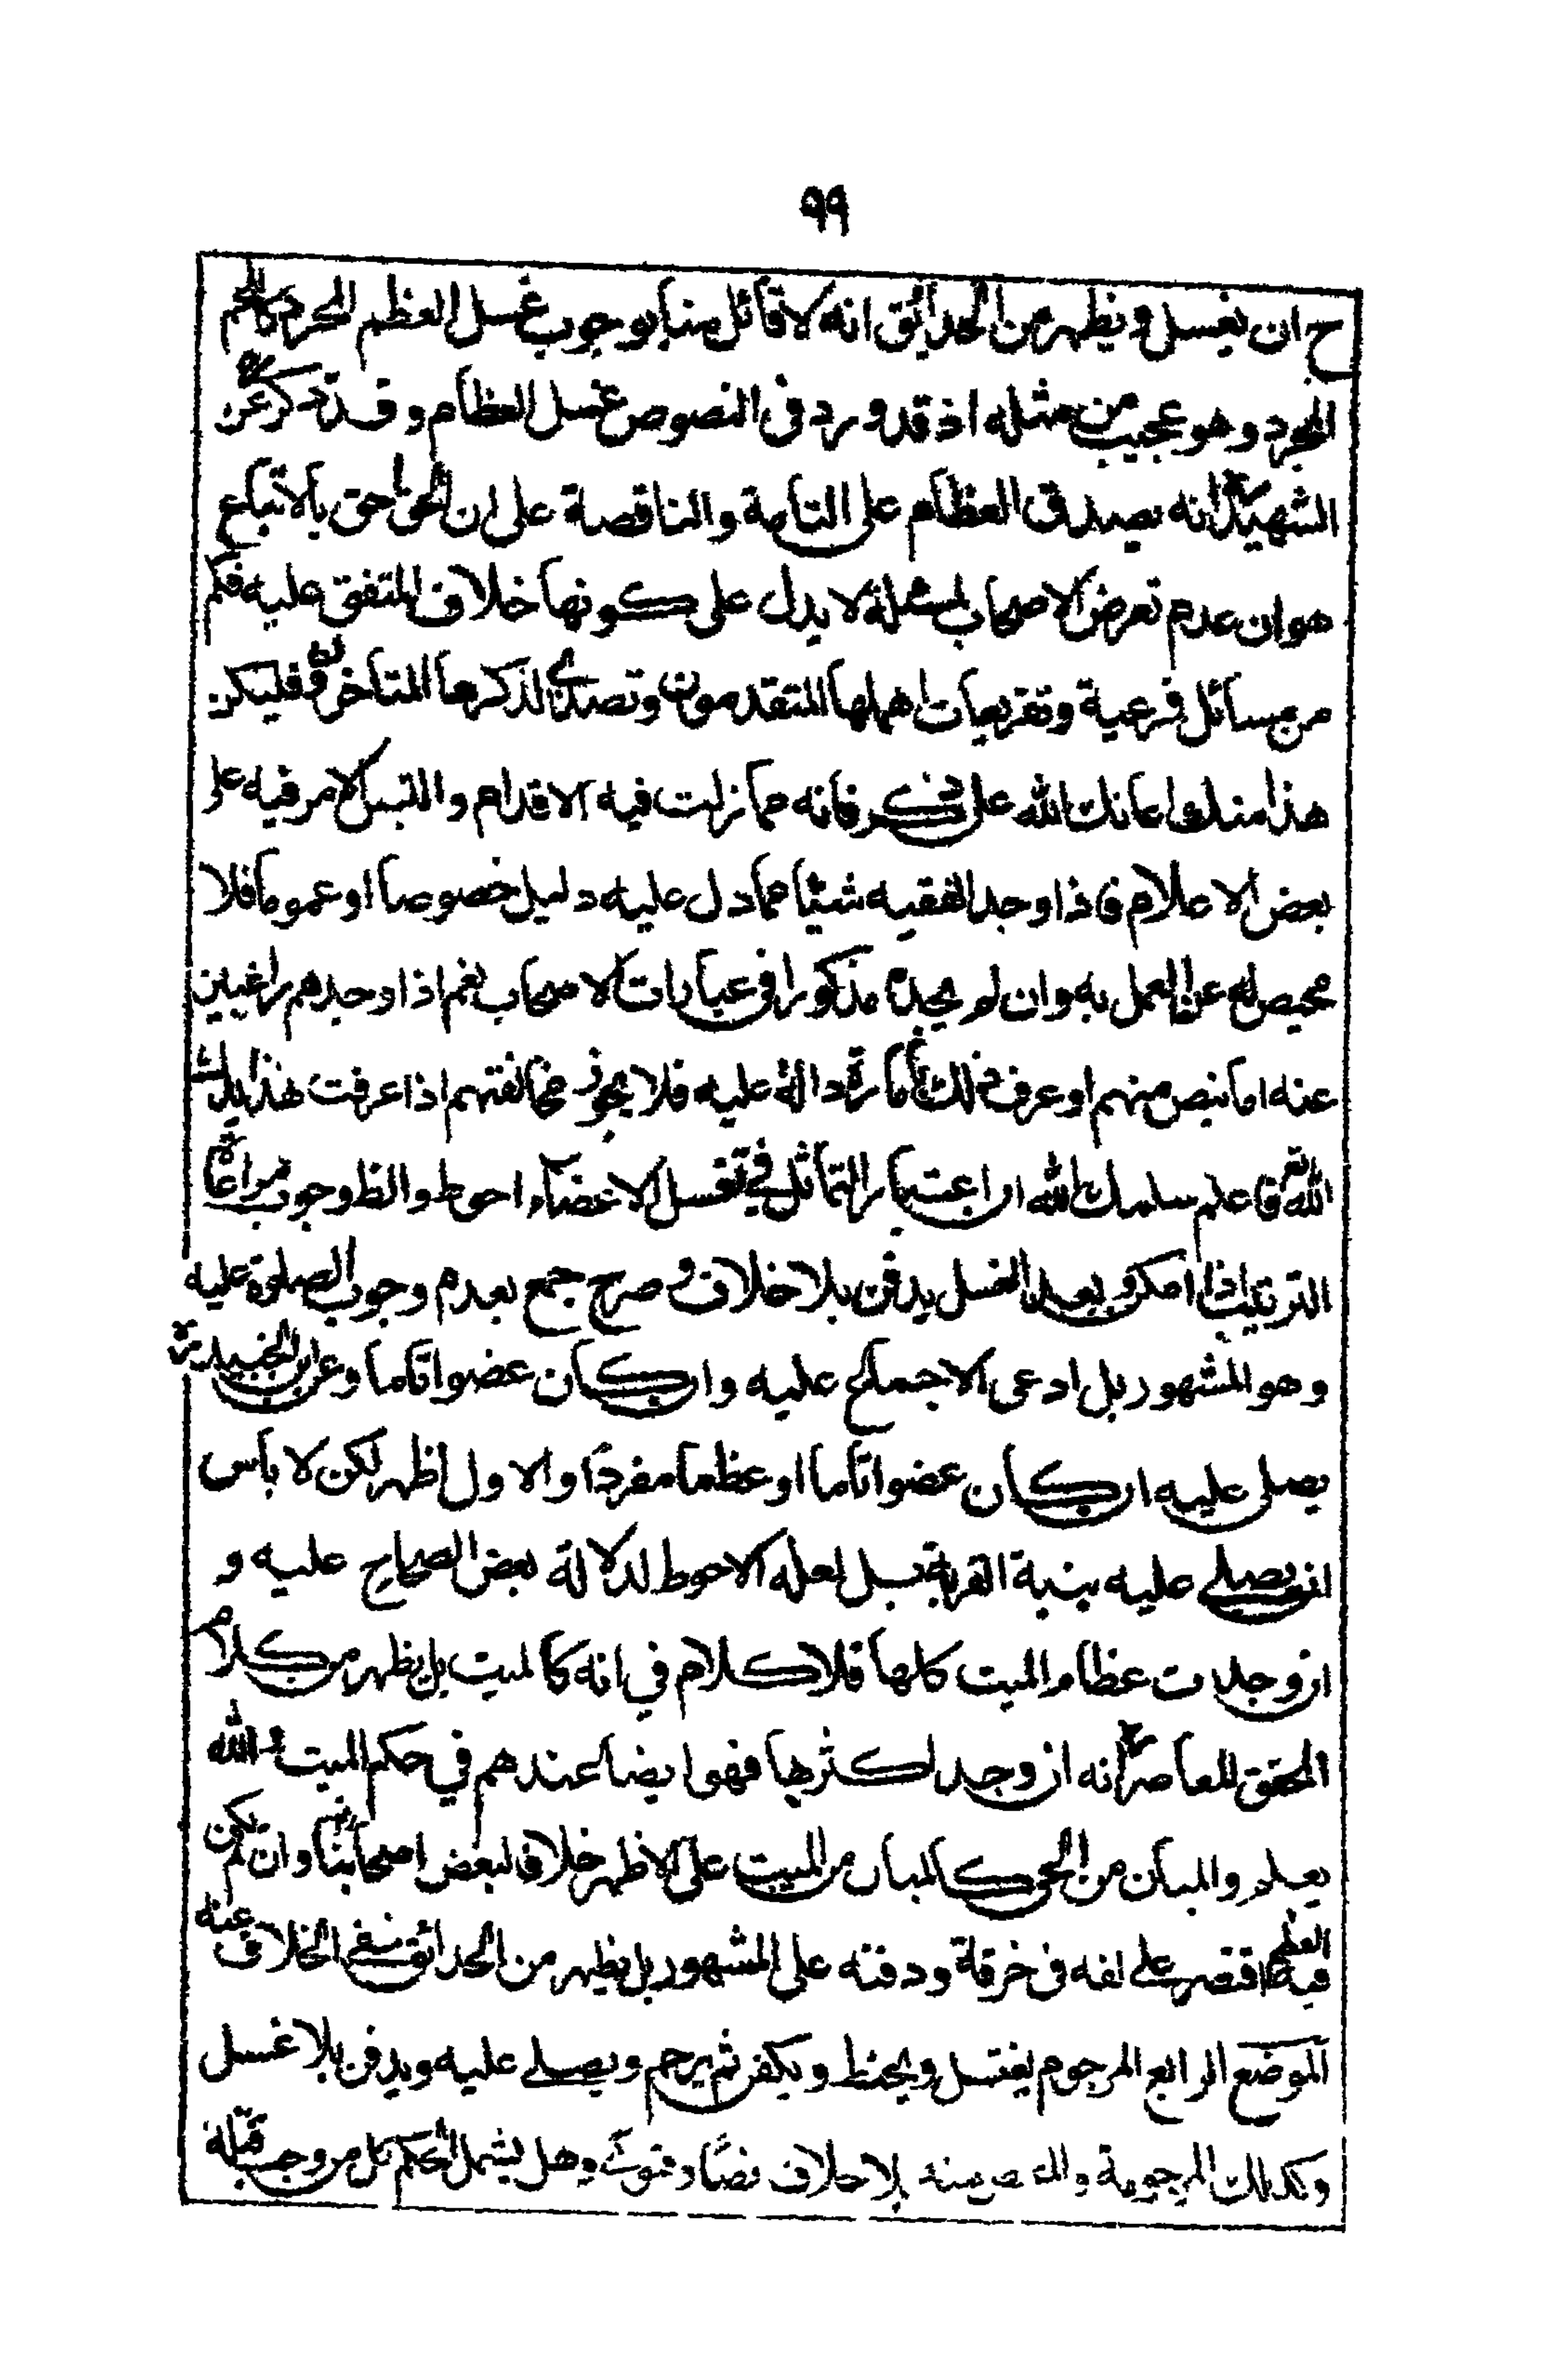 ٩٩
ح ان يغسل ويظهر من الحدائق انه لا قائل منا بوجوب غسل العظم المجرد كاللحم
المجرد وهو عجيب من مثله اذ قد ورد في النصوص غسل العظام وقد ذكر عن
الشهيد انه يصدق العظام على التامة والناقصة على ان الحق احق بالاتباع
هو ان عدم تعرض الاصحاب لمسئلة لا يدل على كونها خلاف المتفق عليه فكم
من مسائل فرعية وتفريعات اهملها المتقدمون وتصدى لذكرها المتاخرون فليكن
هذا منك اعانك الله على ذكر فانه مما زلت فيه الاقدام والتبس الامر فيه على
بعض الاعلام فاذا وجد الفقيه شيئا مما دل عليه دليل خصوصا او عموما فلا
محيص له عن العمل به وان لم يجده مذكورا في عبارات الاصحاب نعم اذا وجدهم راغبين
عنه اما بنص منهم او عرف ذلك بامارة دالة عليه فلا يجوز مخالفتهم اذا عرفت هذا
الله تع فاعلم سلمك الله ان اعتبار التماثل في تغسل الاعضاء احوط والظ وجوب مراعاة
الترتيب اذا امكن وبعد الغسل يدفن بلا خلاف وصرح جمع بعدم وجوب الصلوة عليه
وهو المشهور بل ادعى الاجماع عليه وان كان عضوا تاما وعن ابن الجنيد
يصلى عليه ان كان عضوا تاما او عظما مفردا والاول اظهر لكن لا باس
ان يصلى عليه بنية القربة بل لعله الاحوط لدلالة بعض الصحاح عليه و
ان وجدت عظام الميت كلها فلا كلام في انه كالميت بل يظهر من كلام
المحقق المعاصر انه ان وجد اكثرها فهو ايضا عندهم في حكم الميت والله
يعلم والمبان من الحي كالمبان من الميت على الاظهر خلافا لبعض اصحابنا وان لم يكن
فيه العظم اقتصر على لفه في خرقة ودفنه على المشهور بل يظهر من الحدائق نفي الخلاف عنه
الموضع الرابع المرجوم يغتسل ويحنط ويكفن ثم يرجم ويصلى عليه ويدفن بلا غسل
وكذلك المرجومة والمقتص منه بلا خلاف نصا وفتوى وهل يشمل الحكم كل من وجب قتله